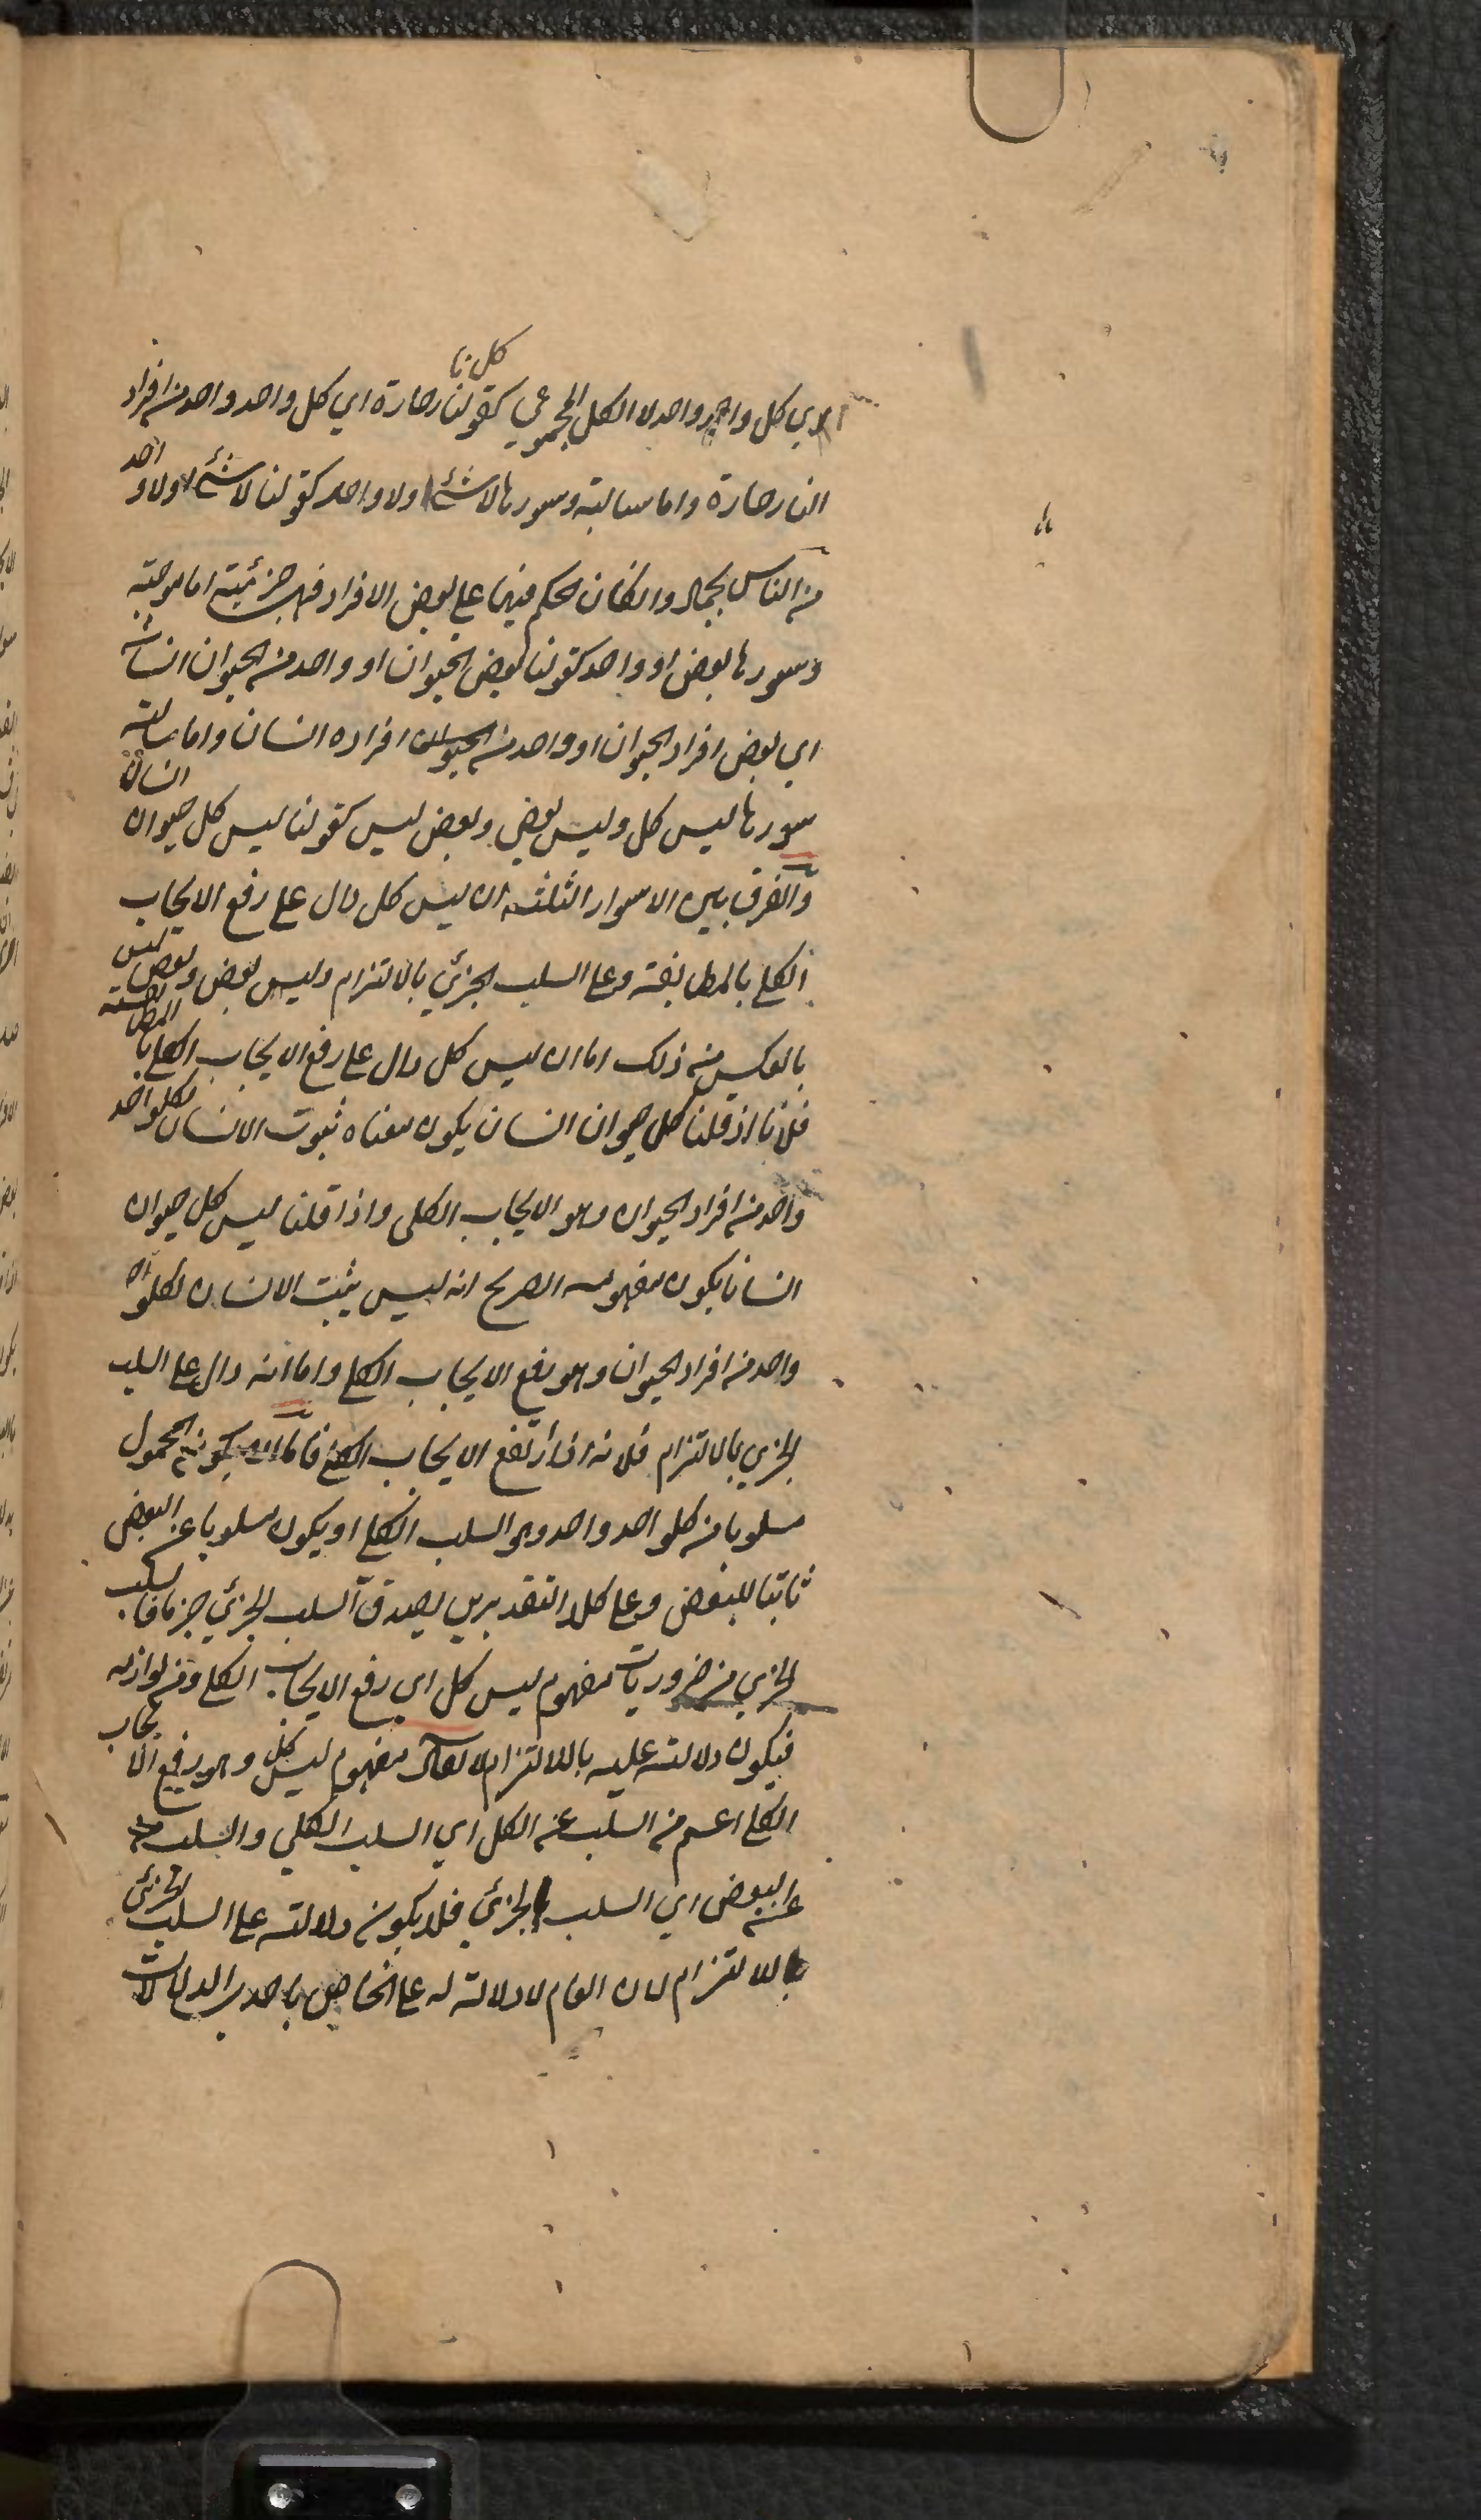 اي كل واحد واحد لا الكل المجموعي كقولنا كل نار حارة اي كل واحد واحد من افراد
النار حارة واما سالبة وسورها لا شئ ولا واحد كقولنا لا شئ ولا واحد
من الناس بجماد وان كان الحكم فيها على بعض الافراد فهي جزئية اما موجبة
وسورها بعض او واحد كقولنا بعض الحيوان او واحد من الحيوان انسان
اي بعض افراد الحيوان او واحد من افراده انسان واما سالبة
سورها ليس كل وليس بعض وبعض ليس كقولنا ليس كل حيوان انسانا
والفرق بين الاسوار الثلثة ان ليس كل دال على رفع الايجاب
الكلي بالمطابقة وعلى السلب الجزئي بالالتزام وليس بعض وبعض ليس
بالعكس من ذلك اما ان ليس كل دال على رفع الايجاب الكلي بالمطابقة
فلانا اذ قلنا كل حيوان انسان يكون معناه ثبوت الانسان لكلواحد
واحد من افراد الحيوان وهو الايجاب الكلي واذا قلنا ليس كل حيوان
انسانا يكون مفهومه الصريح انه ليس يثبت الانسان لكلواحد
واحد من افراد الحيوان وهو رفع الايجاب الكلي واما انه دال على السلب
الجزي بالالتزام فلانه اذا ارتفع الايجاب الكلي فاما ان يكون المحمول
مسلوبا من كلواحد واحد وهو السلب الكلي او يكون مسلوبا عن البعض
ثابتا للبعض وعلى كلا التقديرين يصدق السلب الجزئي جزما فالسلب
الجزي من ضروريات مفهوم ليس كل اي رفع الايجاب الكلي ومن لوازمه
فيكون دلالته عليه باللالتزام لا يقال مفهوم ليس كل وهو رفع الايجاب
الكلي اعم من السلب عن الكل اي السلب الكلي والسلب
عن البعض اي السلب الجزئي فلا يكون دلالته على السلب الجزئي
باللالتزام لان العام لا دلالة له على الخاص باحدي الدلالات